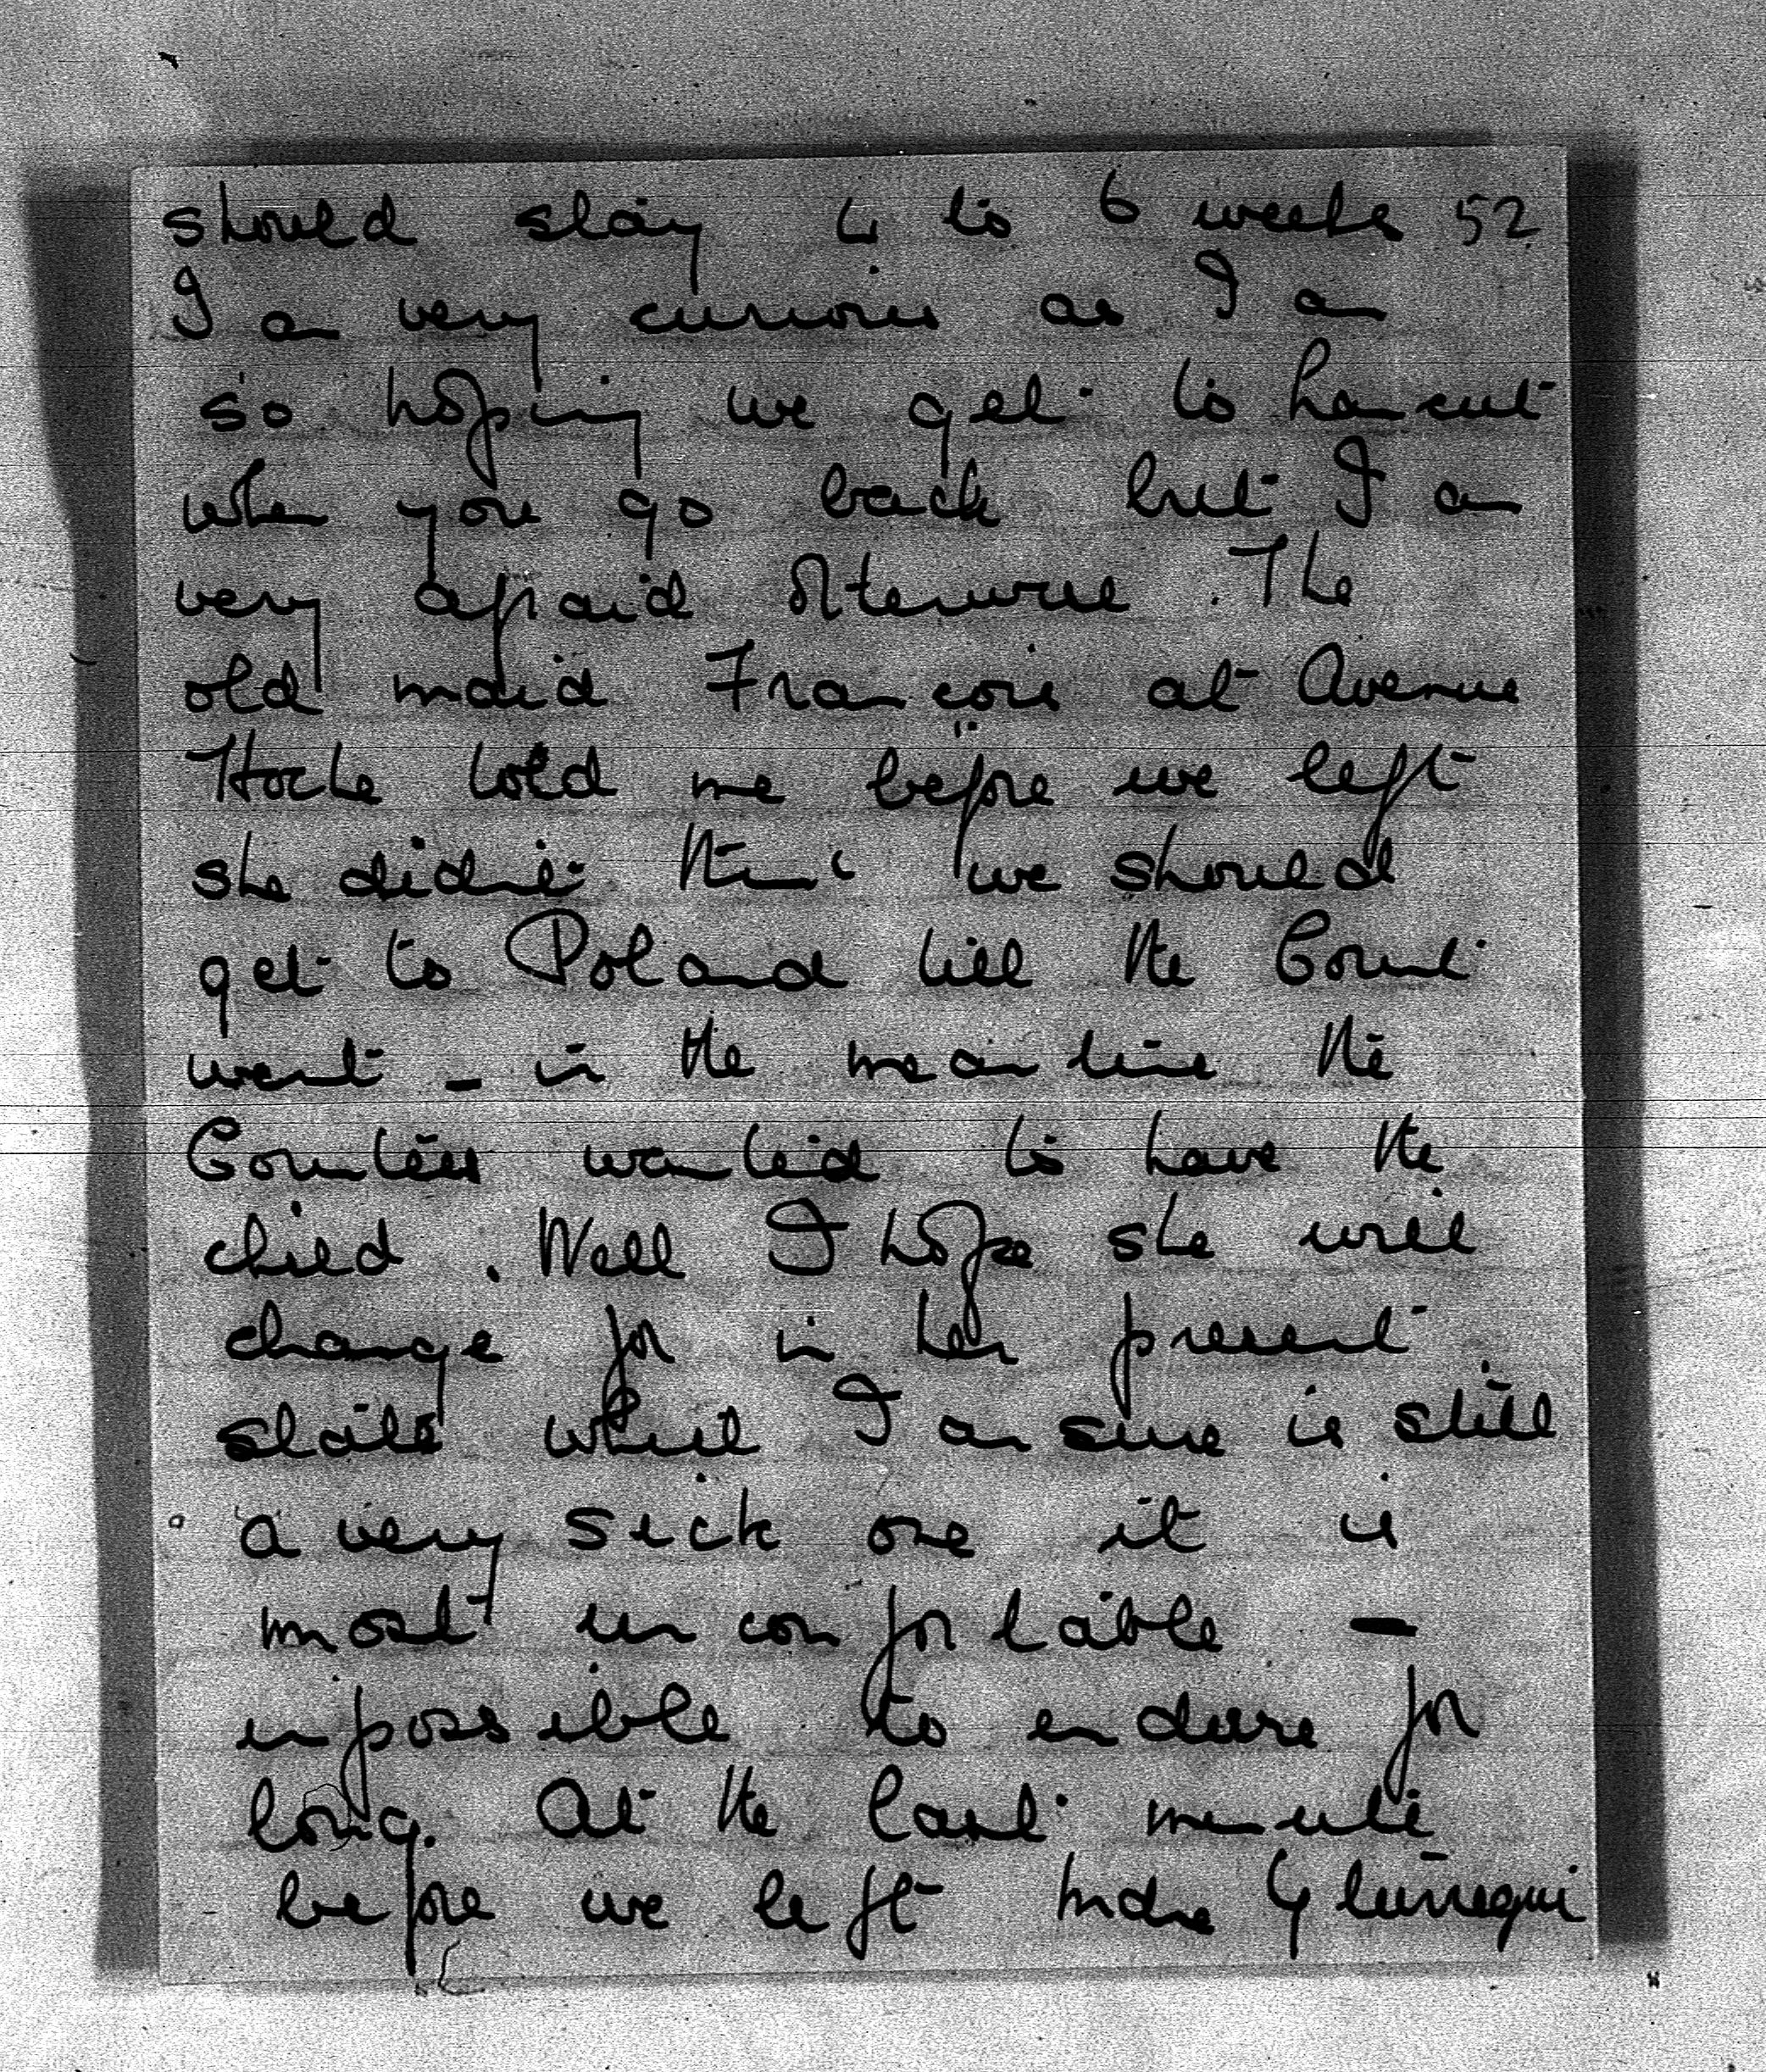 should stay 4 to 6 weeks 52
I am very curious as I am
so hoping we get to Lancut
when you go back but I am
very afraid otherwise. The
old maid Françoise at Avenue
Hoche told me before we left
she didn't think we should
get to Poland till the Count
went - in the meantime the
Countess wanted to have the
child. Well I hope she will
change for in her present
state which I am sure is still
a very sick one it is
most uncomfortable -
impossible to endure for
long. At the last minute
before we left Mdme